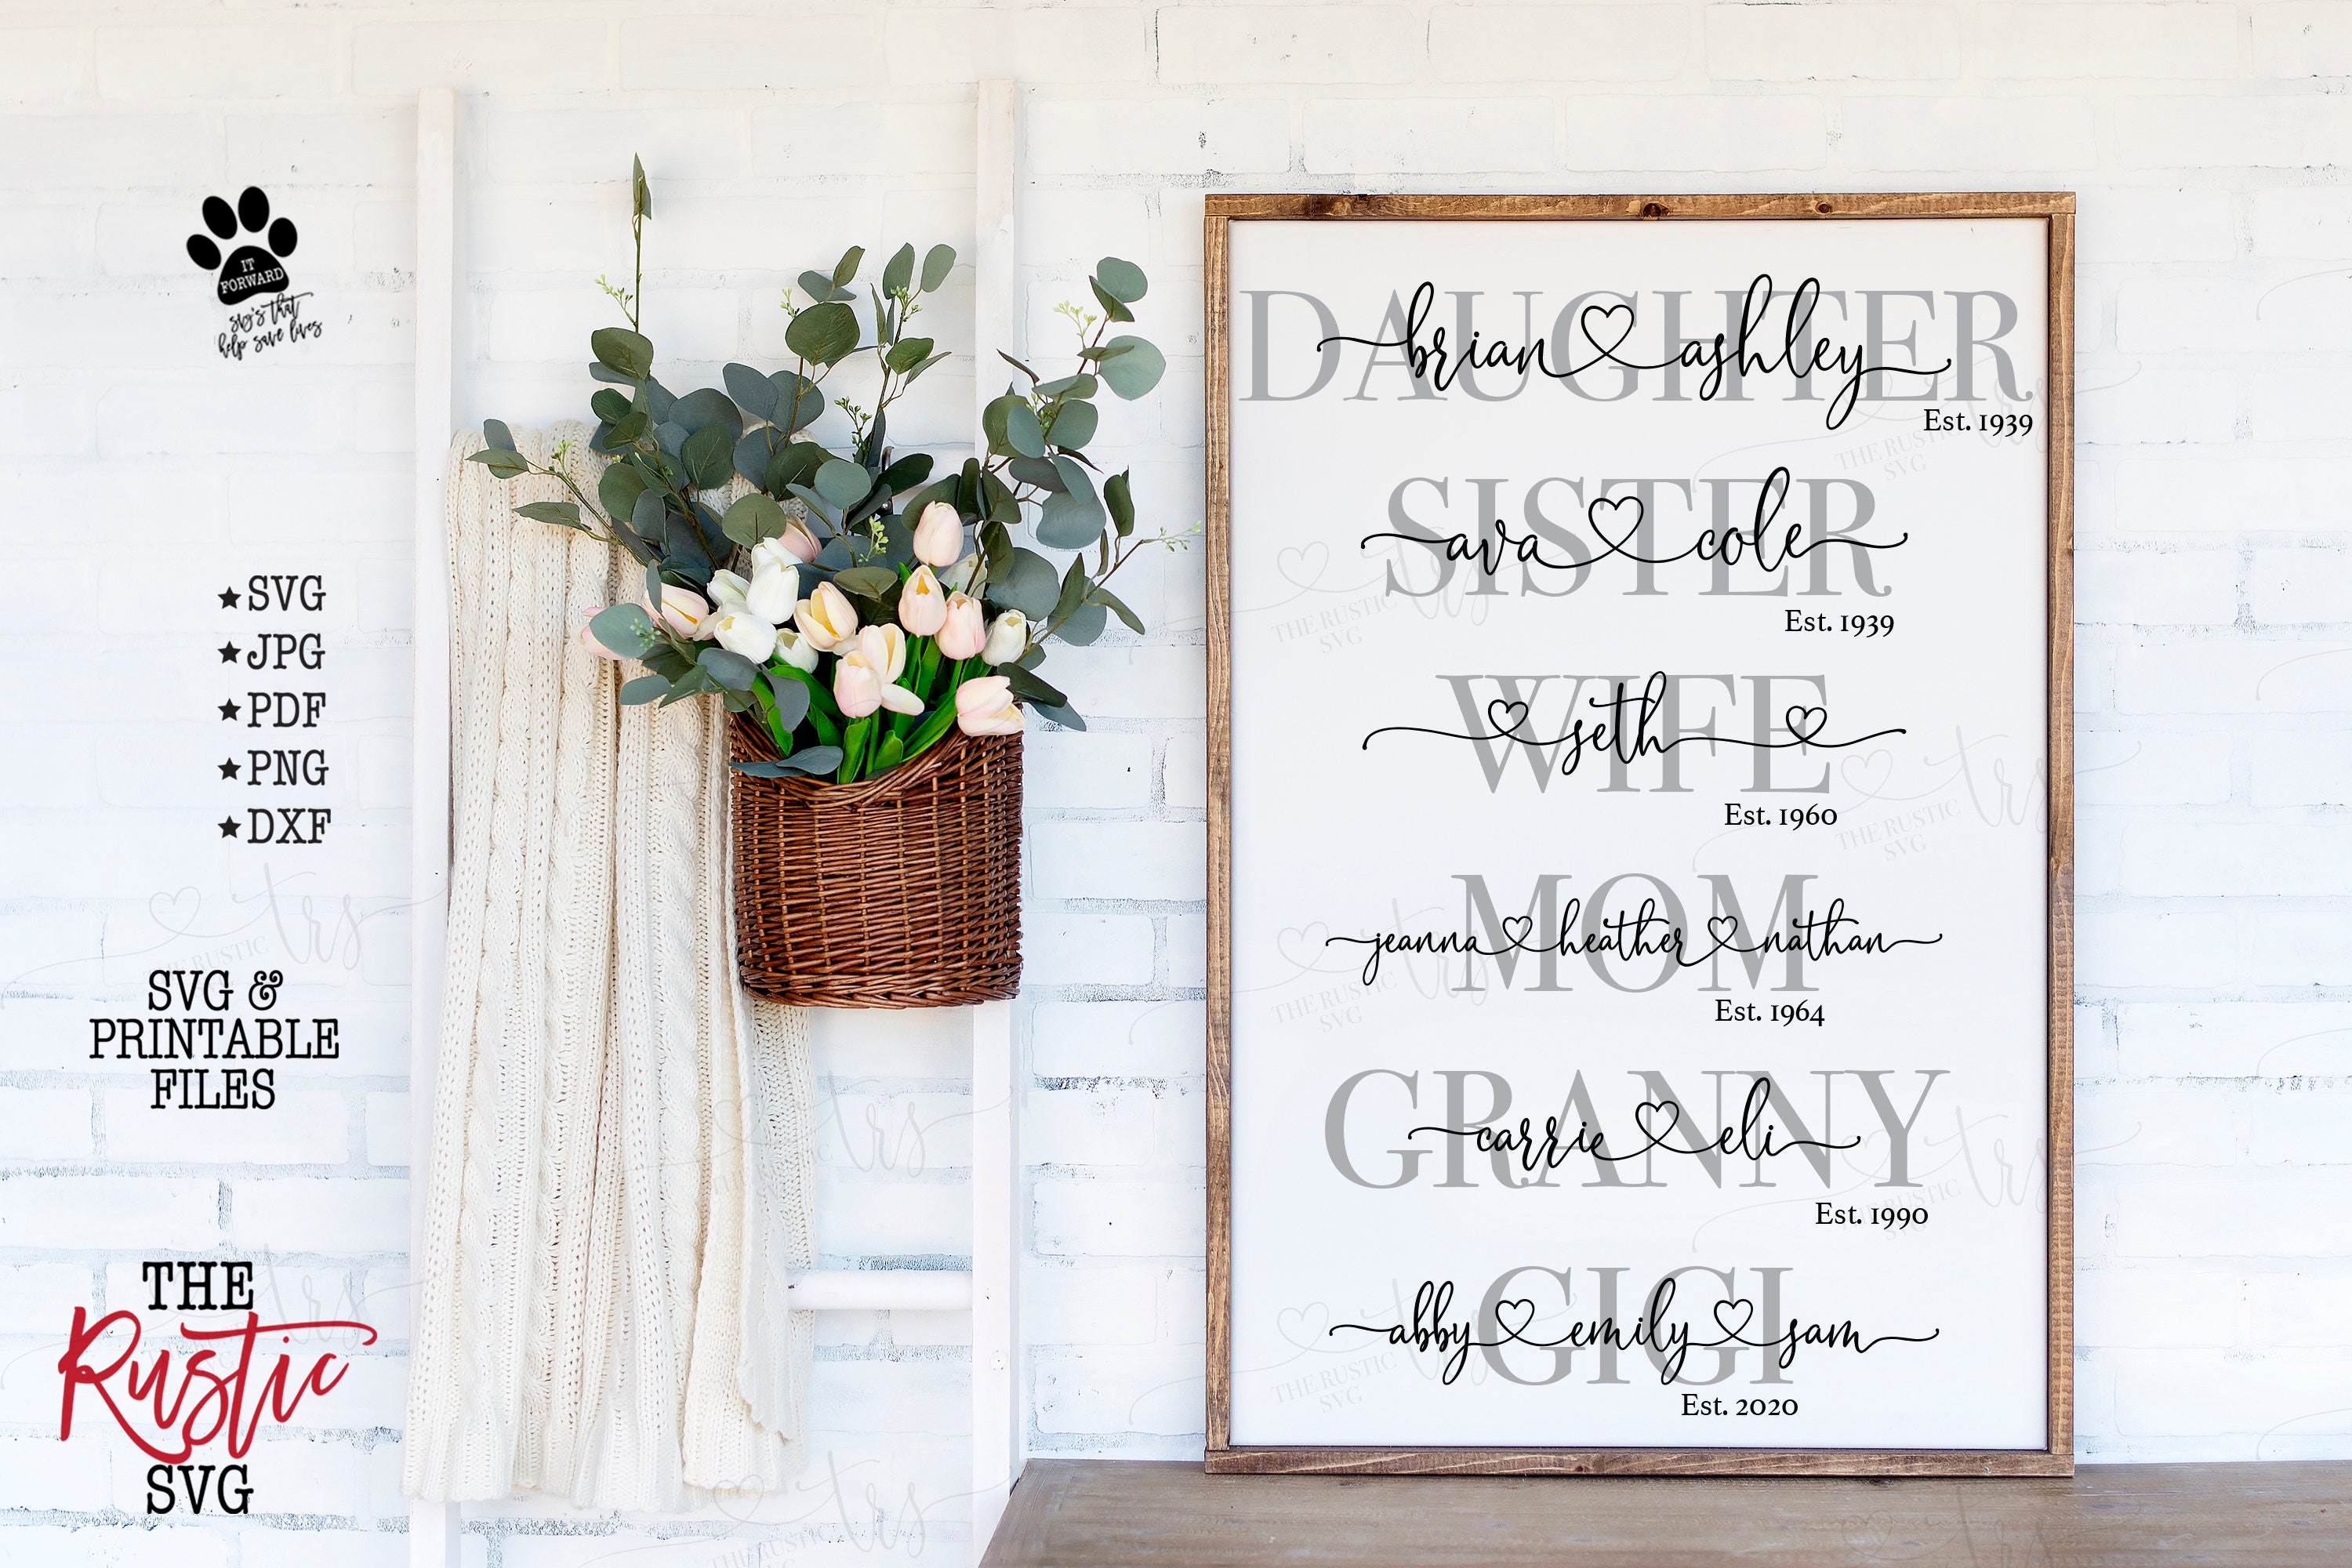 IT
FORWARD
svg's that
help save lives
★SVG
★JPG
★PDF
★PNG
★DXF
SVG &
PRINTABLE
FILES
THE
Rustic
SVG
DAUGHTER
brian ashley
Est. 1939
SISTER
ava cole
Est. 1939
WIFE
seth
Est. 1960
MOM
jeanna heather nathan
Est. 1964
GRANNY
carrie eli
Est. 1990
GIGI
abby emily sam
Est. 2020
trs
THE RUSTIC
SVG